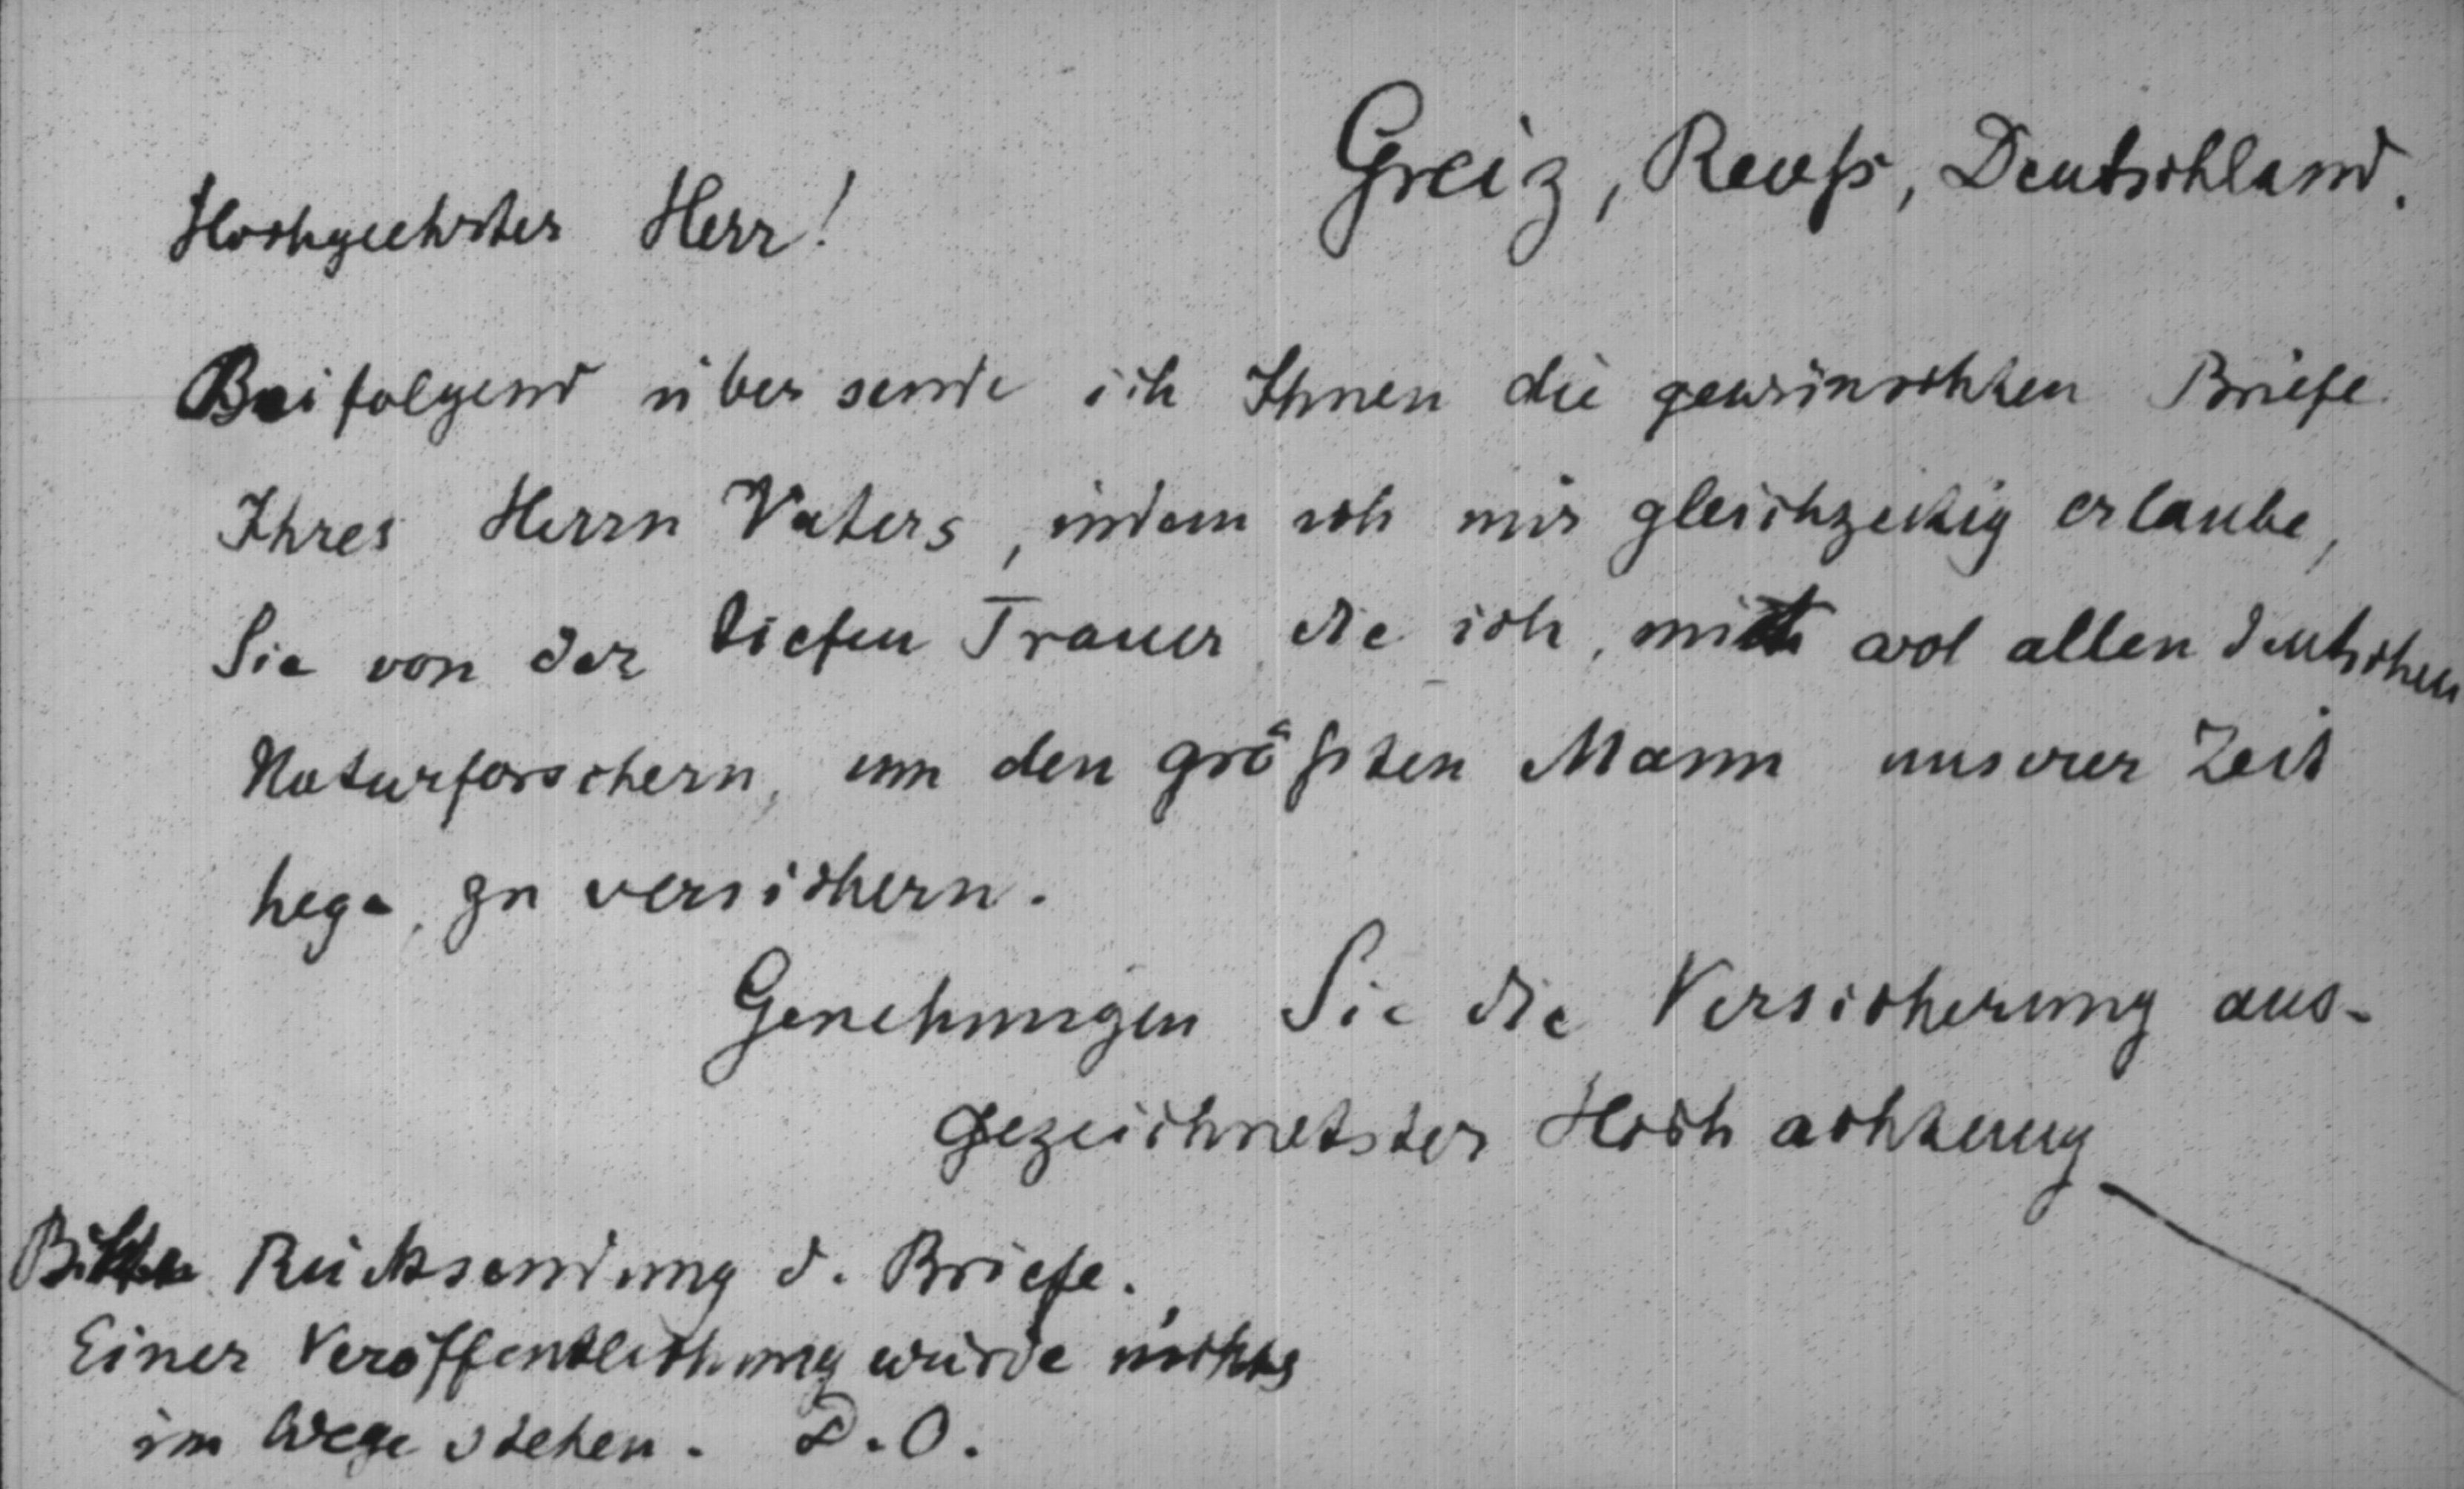 Greiz, Reuß, Deutschland.
Hochgeehrter Herr!
Beifolgend übersende ich Ihnen die gewünschten Briefe
Ihres Herrn Vaters, indem ich mir gleichzeitig erlaube,
Sie von der tiefen Trauer, die ich, mit wol allen deutschen
Naturforschern, um den größten Mann unserer Zeit
hege, zu versichern.
Genehmigen Sie die Versicherung aus-
gezeichnetster Hochachtung
Bitte Rücksendung d. Briefe.
Einer Veröffentlichung würde nichts
im Wege stehen. D.O.